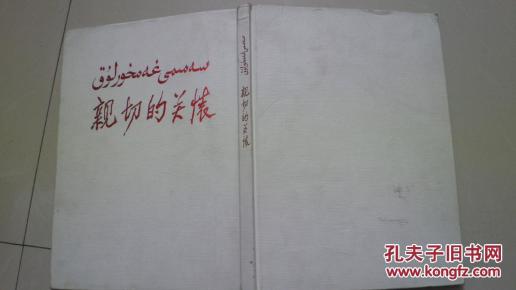 سەمىمىي غەمخورلۇق
亲切的关怀
سەمىمىي غەمخورلۇق
亲切的关怀
孔夫子旧书网
www.kongfz.com